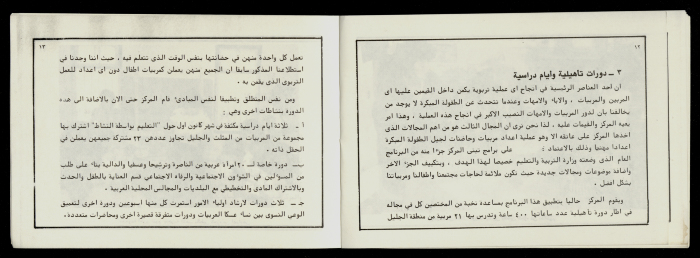 ١٢
٣ ــ دورات تأهيلية وأيام دراسية
ان احد العناصر الرئيسية في انجاح اى عملية تربوية يكمن داخل القيمين عليها اى
المربين والمربيات ، والاباء والامهات وعندما نتحدث عن الطفولة المبكرة لا يوجد من
يخالفنا بان لدور المربيات والامهات النصيب الاكبر في انجاح هذه العملية ، وهذا امر
يعيه المركز والقيمات عليه ، لذا نحن نرى ان المجال الثالث هو من اهم المجالات الذى
اخذها المركز على عاتقه الا وهو عملية اعداد مربيات وحاضنات لجيل الطفولة المبكرة
اعدادا مهنيا وذلك بالاعتماد : على برامج تبنى المركز جزءا منه من البرنامج
العام الذى وضعته وزارة التربية والتعليم خصيصا لهذا الهدف ، وبتكييف الجزء الاخر
واضافة موضوعات ومجالات جديدة حيث تكون ملائمة لحاجات مجتمعنا واطفالنا ومربياتنا
بشكل افضل .
ويقوم المركز حاليا بتطبيق هذا البرنامج بمساعدة نخبة من المختصين كل في مجاله
في اطار دورة تأهيلية عدد ساعاتها ٤٠٠ ساعة وتدرس بها ٢١ مربية من منطقة الجليل
١٣
تعمل كل واحدة منهن في حضانتها بنفس الوقت الذى تتعلم فيه ، حيث اننا وجدنا في
استطلاعنا المذكور سابقا ان الجميع منهن يعملن كمربيات اطفال دون اى اعداد للعمل
التربوى الذى يقمن به .
ومن نفس المنطلق وتطبيقا لنفس المبادىء قام المركز حتى الان بالاضافة الى هذه
الدورة بنشاطات اخرى وهي :
أ ــ ثلاثة ايام دراسية مكثفة في شهر كانون اول حول "التعليم بواسطة النشاط" اشترك بها
مجموعة من المربيات من المثلث والجليل تجاوز عددهن ٢٣ مشتركة جميعهن يعملن في
الحقل ذاته .
ب ــ دورة خاصة لـ ٢٠ امرأة عربية من الناصرة وترشيحا وعسفيا والدالية بناء على طلب
من المسؤولين في الشؤون الاجتماعية والرفاه الاجتماعي قسم العناية بالطفل والحدث
وبالاشتراك المادى والتخطيطي مع البلديات والمجالس المحلية العربية .
جـ ــ ثلاث دورات لارشاد اولياء الامور استمرت كل منها اسبوعين ودورة اخرى لتعميق
الوعي النسوى بين نساء عكا العربيات ودورات متفرقة قصيرة اخرى ومحاضرات متعددة.